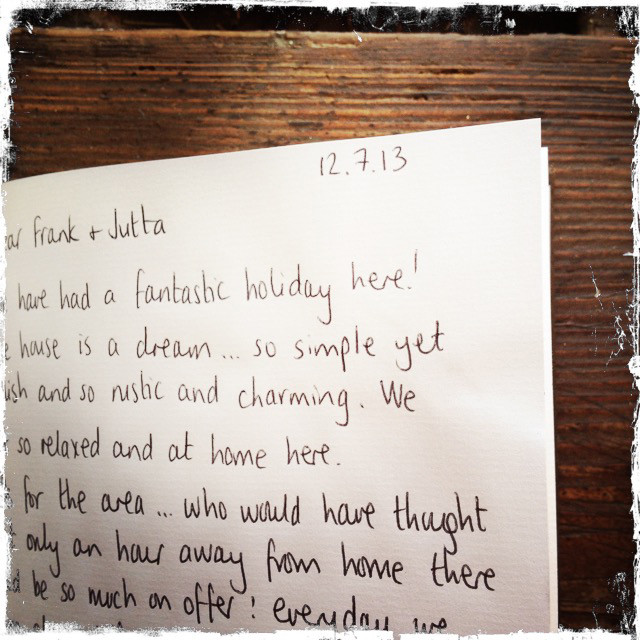 12.7.13
ar Frank + Jutta
have had a fantastic holiday here!
e house is a dream... so simple yet
lish and so rustic and charming. We
so relaxed and at home here.
for the area... who would have thought
only an hour away from home there
d be so much on offer! everyday we